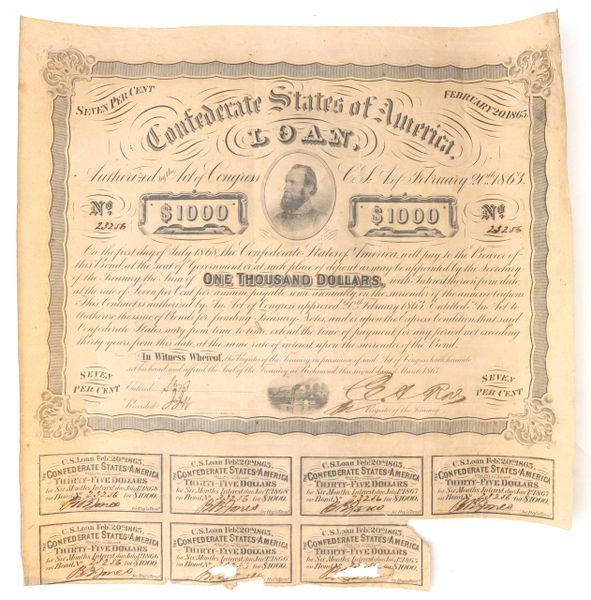 SEVEN PER CENT
FEBRUARY 20, 1863.
Confederate States of America.
LOAN,
Authorized by the Act of Congress C.S.A. of February 20th 1863.
No $1000 $1000 No
23256 23256
On the first day of July 1868, the Confederate States of America, will pay to the Bearer of
this Bond, at the seat of Government or at such place of deposit as may be appointed by the Secretary
of the Treasury, the Sum of ONE THOUSAND DOLLARS, with Interest thereon from date
at the rate of Seven per Cent per annum, payable semi annually, on the surrender of the annexed Coupons.
This Contract is authorized by An Act of Congress approved 20th February 1863, Entitled An Act to
Authorize the issue of Bonds for funding Treasury Notes, and is upon the Express Condition, that said
Confederate States, may from time to time extend the time of payment for any period not exceeding
thirty years from this date at the same rate of interest, upon the surrender of the Bond.
In Witness Whereof, the Register of the Treasury, in pursuance of said Act of Congress hath hereunto
set his hand, and affixed the Seal of the Treasury, at Richmond, this second day of March 1863.
SEVEN PER CENT
Entered
Recorded
Register of the Treasury
SEVEN PER CENT
C.S. Loan Feby. 20th 1863.
THE CONFEDERATE STATES OF AMERICA
THIRTY-FIVE DOLLARS
for Six Months Interest due July 1st 1868
on Bond No. 23256 for $1000.
for Register of Treas.
C.S. Loan Feby. 20th 1863.
THE CONFEDERATE STATES OF AMERICA
THIRTY-FIVE DOLLARS
for Six Months Interest due Jany. 1st 1868
on Bond No. 23256 for $1000.
for Register of Treas.
C.S. Loan Feby. 20th 1863.
THE CONFEDERATE STATES OF AMERICA
THIRTY-FIVE DOLLARS
for Six Months Interest due July 1st 1867
on Bond No. 23256 for $1000.
for Register of Treas.
C.S. Loan Feby. 20th 1863.
THE CONFEDERATE STATES OF AMERICA
THIRTY-FIVE DOLLARS
for Six Months Interest due Jany. 1st 1867
on Bond No. 23256 for $1000.
for Register of Treas.
C.S. Loan Feby. 20th 1863.
THE CONFEDERATE STATES OF AMERICA
THIRTY-FIVE DOLLARS
for Six Months Interest due July 1st 1866
on Bond No. 23256 for $1000.
for Register of Treas.
C.S. Loan Feby. 20th 1863.
THE CONFEDERATE STATES OF AMERICA
THIRTY-FIVE DOLLARS
for Six Months Interest due Jany. 1st 1866
on Bond No. 23256 for $1000.
C.S. Loan Feby. 20th 1863.
THE CONFEDERATE STATES OF AMERICA
THIRTY-FIVE DOLLARS
for Six Months Interest due July 1st 1865
on Bond No. 23256 for $1000.